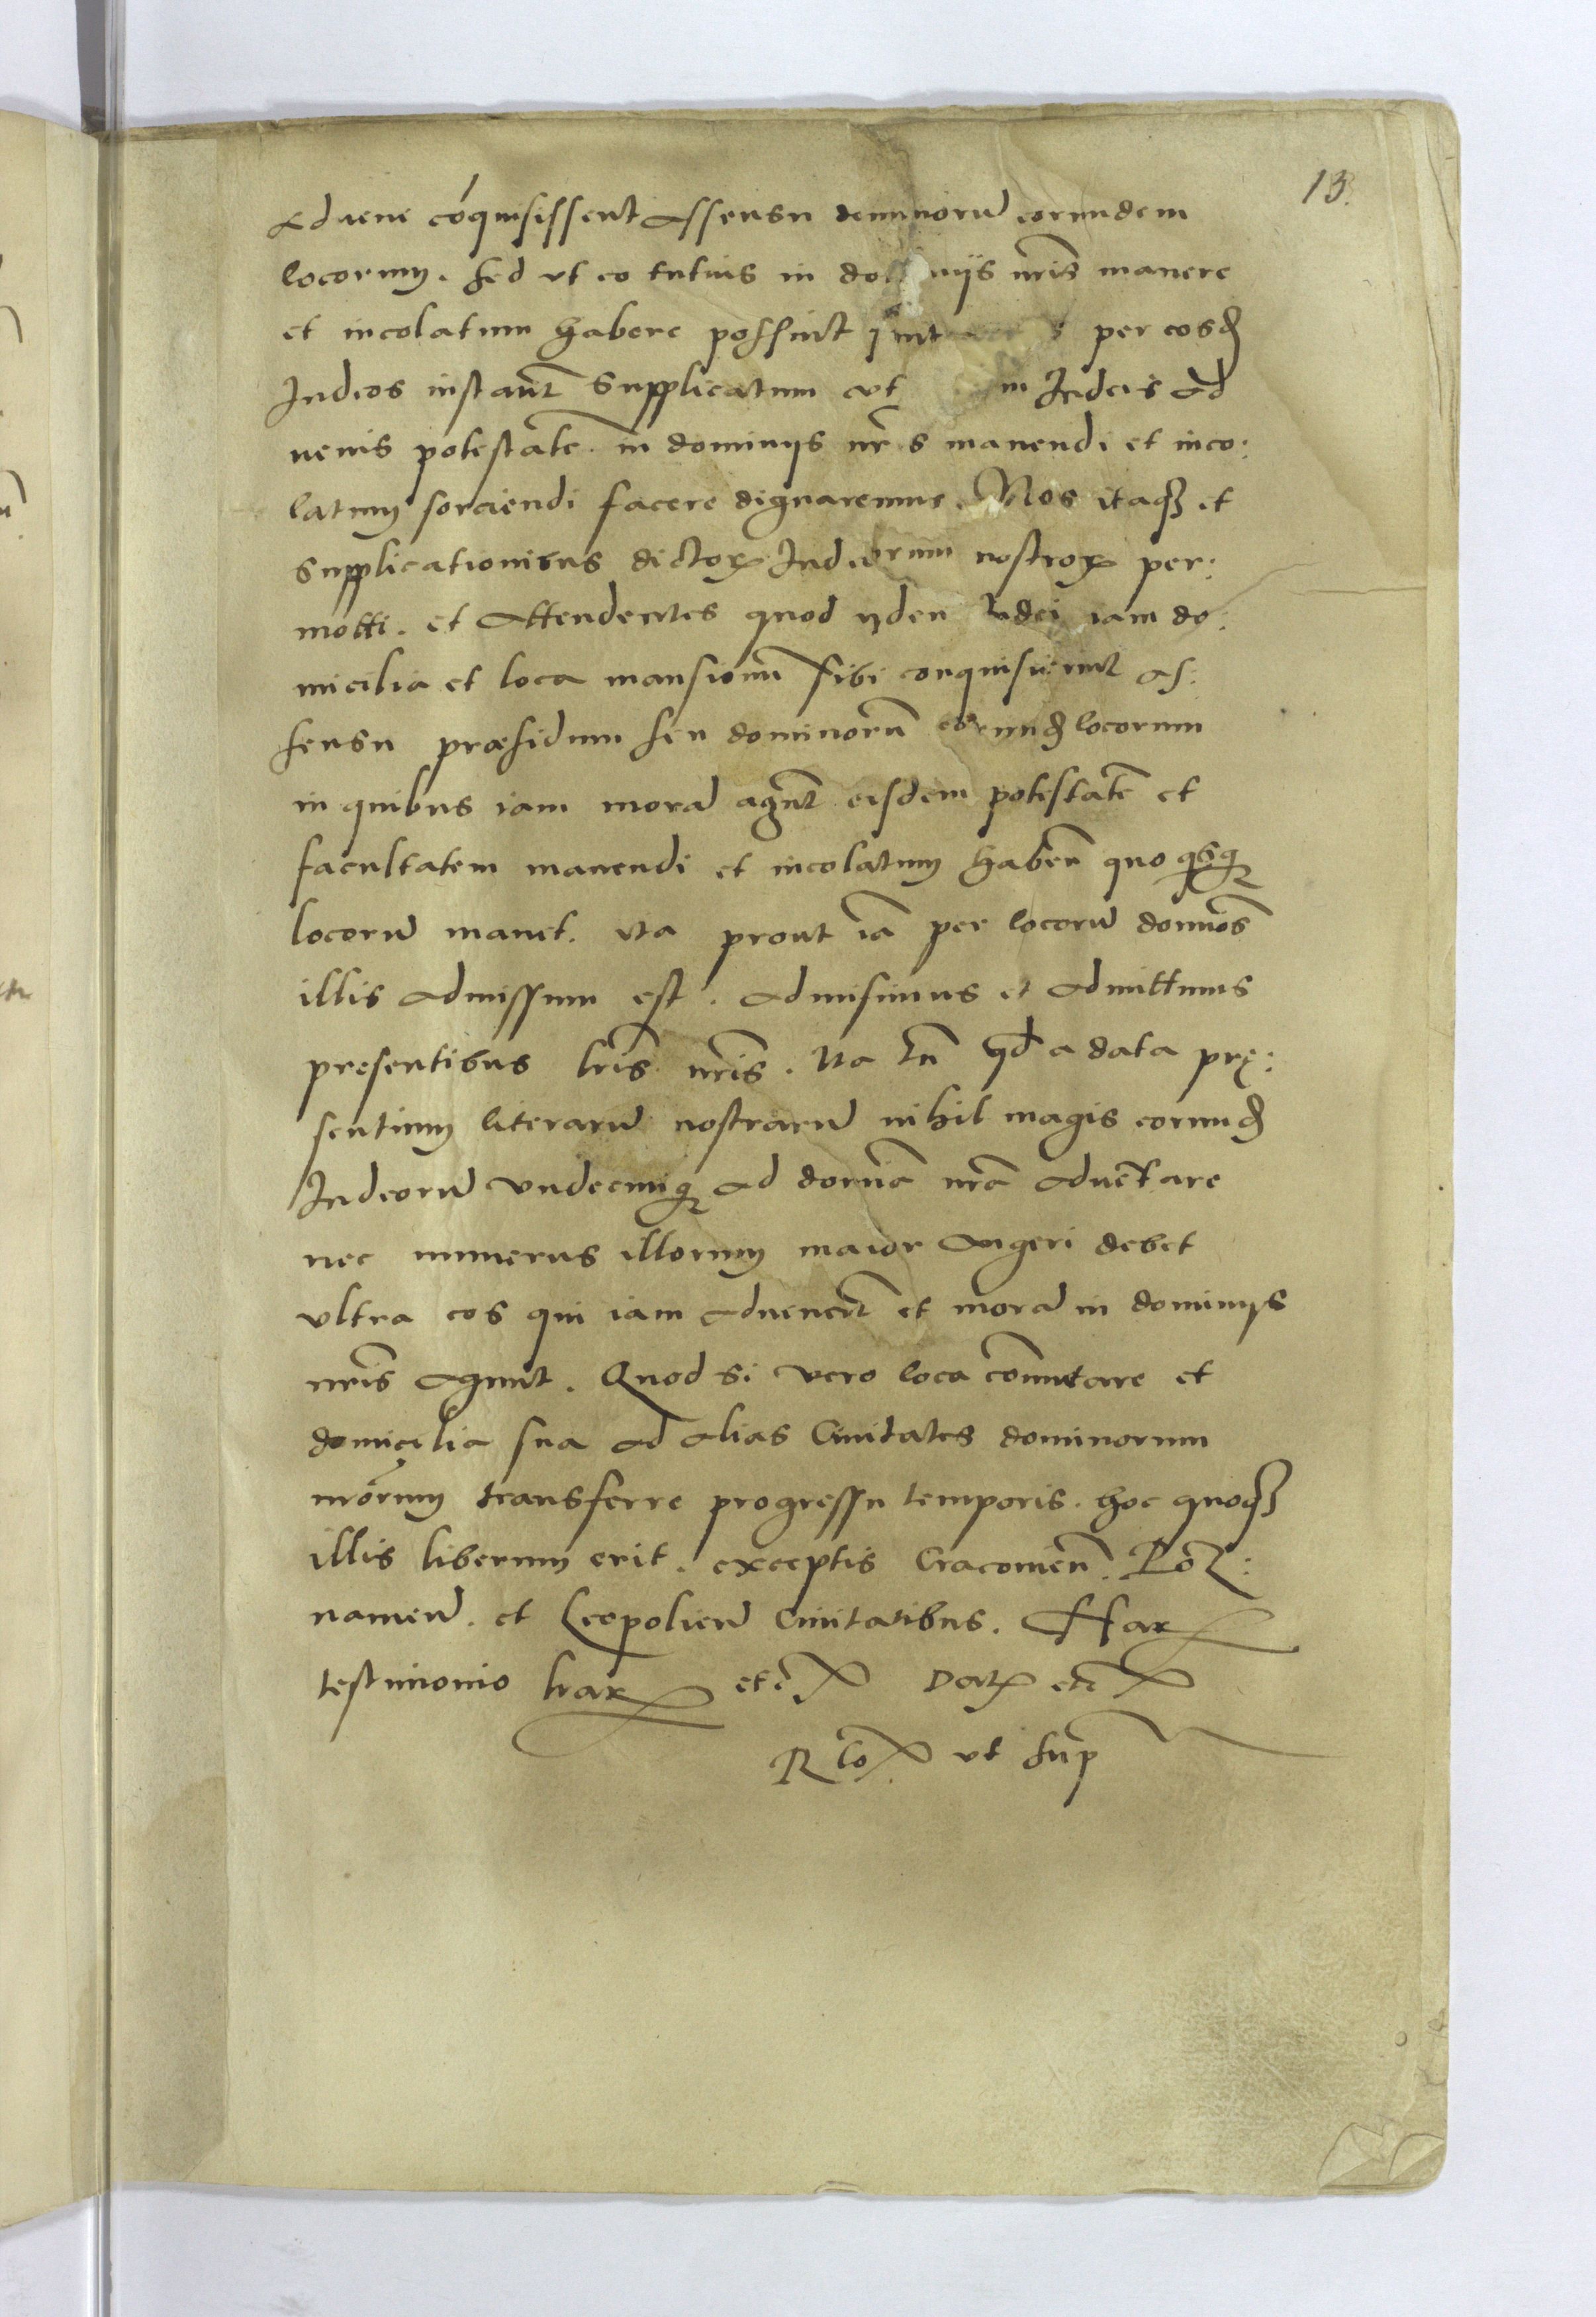 13.
advene cōquisissent assensu dominorū eorundem
locorum. sed ut eo tutius in do niis nr̄is manere
et incolatum habere possint per eosdꝫ
Judeos instant̄ supplicatum ut Judeis ad
venis potestatē in dominijs nr̄s manendi et inco:
latum sorciendi facere dignaremur. Nos itaqꝫ et
supplicationibus dictoꝝ Judeorum nostroꝝ per:
motti. et attendentes quod ijdem Judei iam do:
micilia et loca mansionū sibi conquisierint as:
sensu præsidum seu dominorū eorundꝫ locorum
in quibus iam morā agūnt eisdem potestatē et
facultatem manendi et incolatum habēn quo qsqꝫ
locorū manet. ita prout iā per locorū domīos
illis admissum est. admisimus et admittimus
presentibus lr̄is nr̄is. Ita tn̄ qd̄ a data prę:
sentium literarū nostrarū nihil magis eorundꝫ
Judeorū undecunqꝫ ad domīa nr̄a advētare
nec numerus illorum maior augeri debet
ultra eos qui iam advenerūt et morā in dominijs
nr̄is agunt. Quod si vero loca cōmutare et
domicilia sua ad alias Civitates dominorum
nrōrum transferre progressu temporis. hoc quoqꝫ
illis liberum erit. exceptis Cracovien̄. Poz:
namen̄. et Leopolien̄ Civitatibus. Har
testimonio lrar etc̄ Datꝫ etc̄
Rlō ut sup